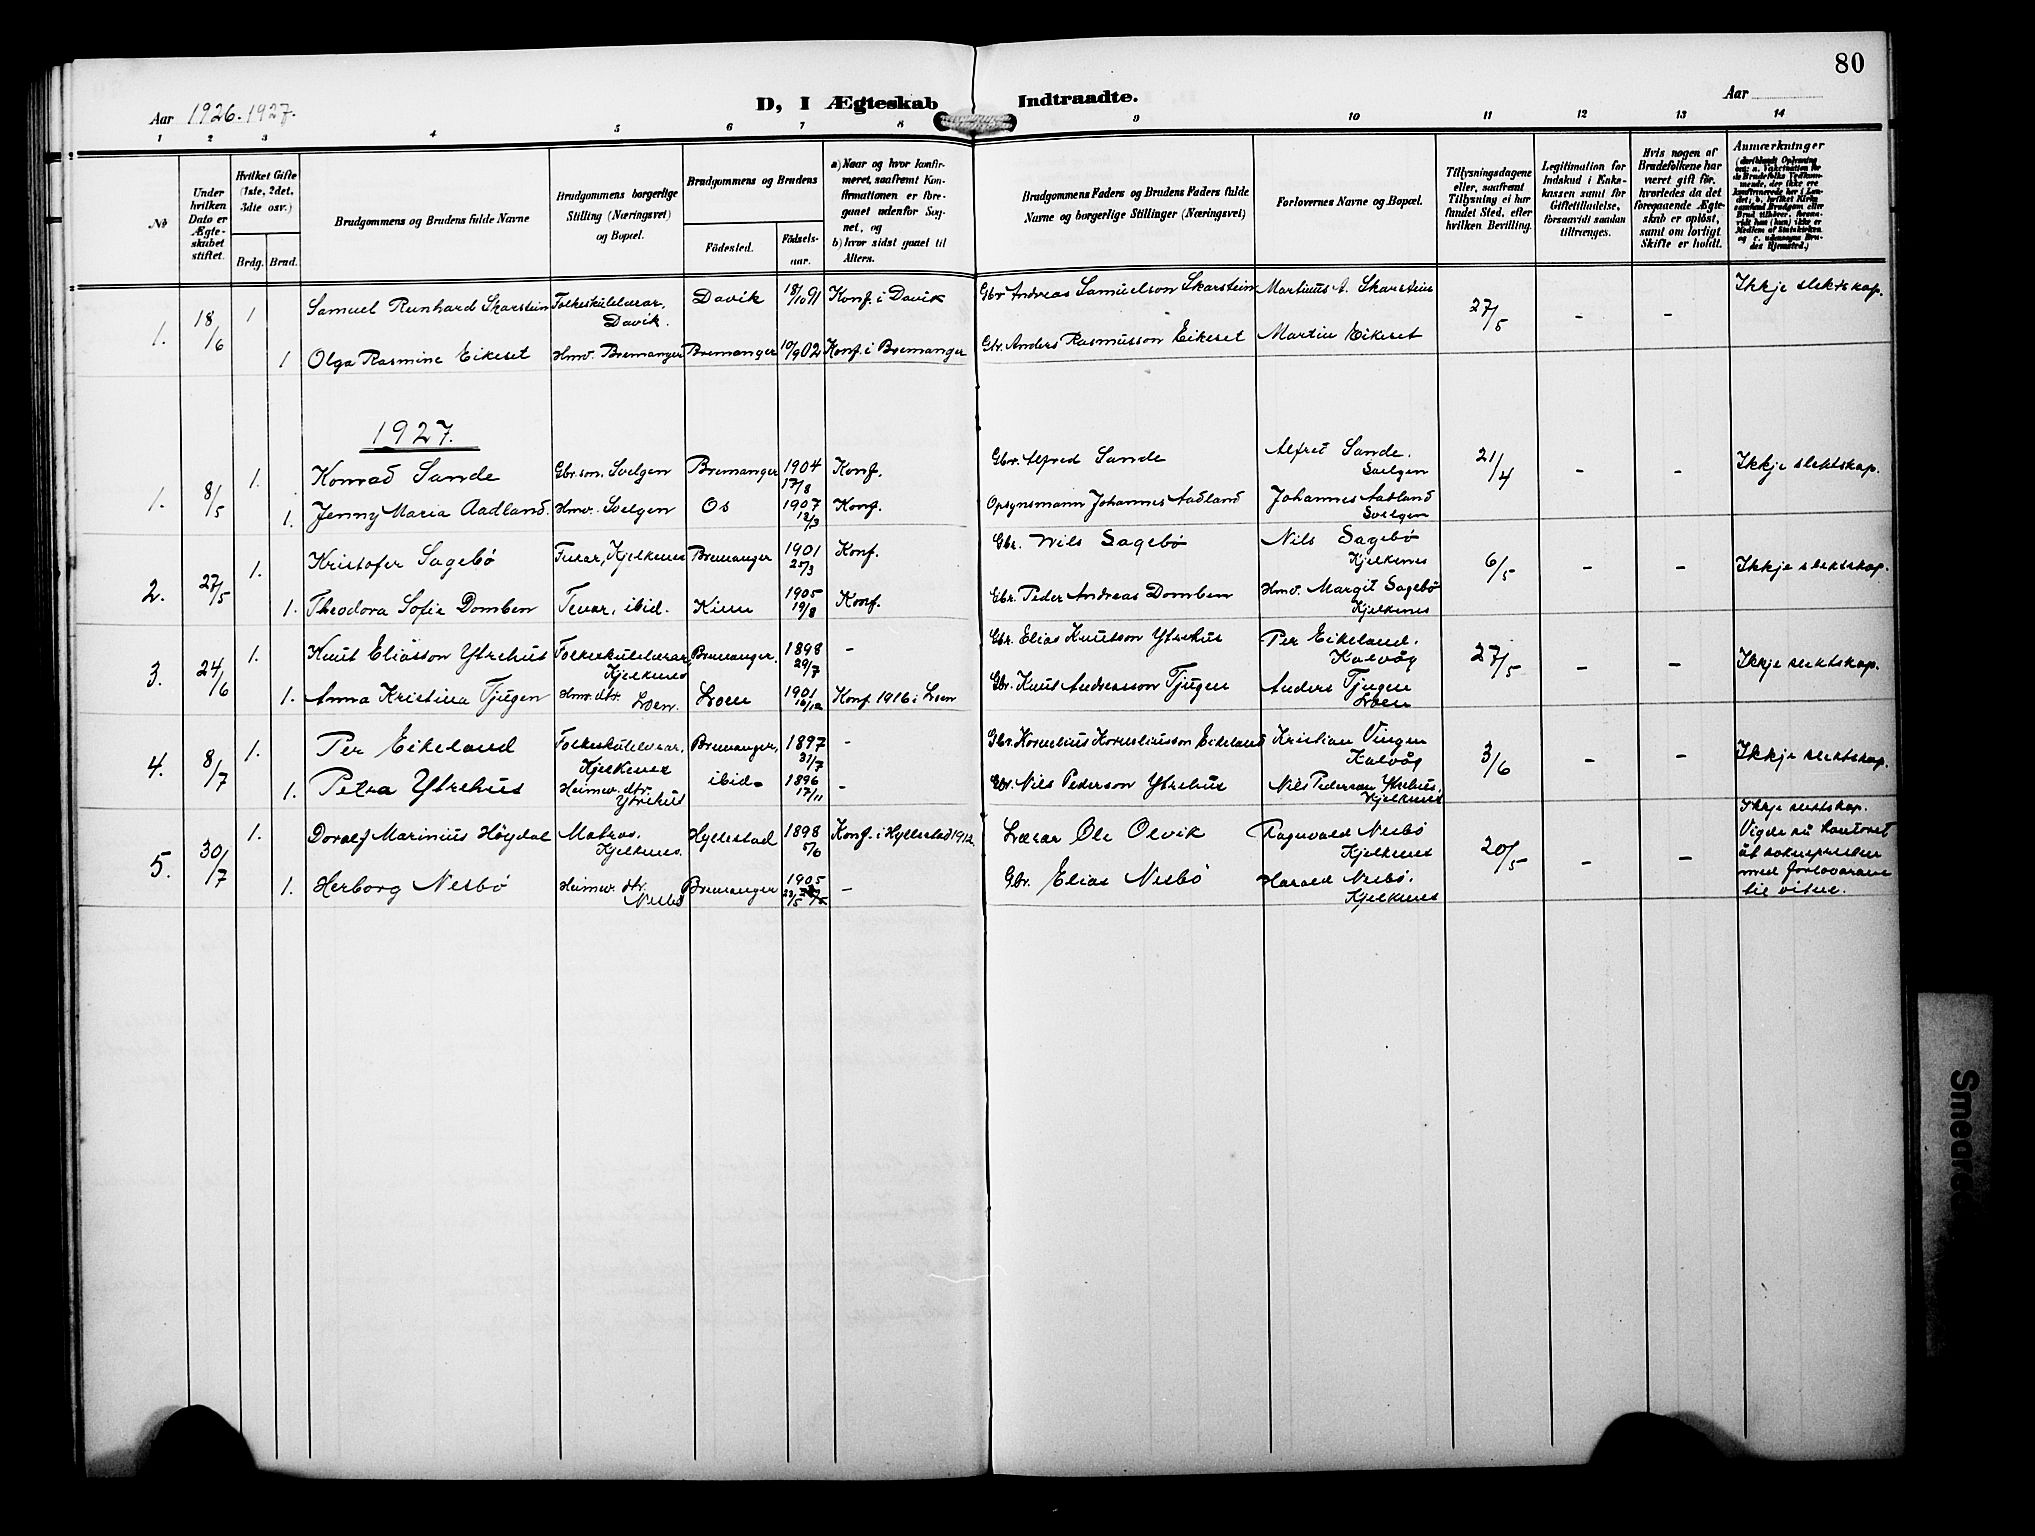 80
D, I Ægteskab Indtraadte.
Aar 1926-1927.
Aar
1 2 3 4 5 6 7 8 9 10 11 12 13 14
No
Under hvilken Dato er Ægteskabet stiftet.
Hvilket Gifte (1ste, 2det, 3die osv.)
Brdg. Brud.
Brudgommens og Brudens fulde Navne
Brudgommens borgerlige Stilling (Næringsvei) og Bopæl.
Brudgommens og Brudens
Födested.
Födselsaar.
a) Naar og hvor konfirmeret, saafremt Konfirmationen er foregaaet udenfor Sognet, og
b) hvor sidst gaaet til Alters.
Brudgommens Faders og Brudens Faders fulde Navne og borgerlige Stillinger (Næringsvei)
Forlovernes Navne og Bopæl.
Tillysningsdagene eller, saafremt Tillysning ei har fundet Sted, efter hvilken Bevilling.
Legitimation for Indskud i Enkekassen samt for Giftetilladelse, forsaavidt saadan tiltrænges.
Hvis nogen af Brudefolkene har været gift för, hvorledes da det foregaaende Ægteskab er oplöst, samt om lovligt Skifte er holdt.
Anmærkninger
1. 18/6 1 Samuel Reinhard Skarstein Folkeskulelærar, Davik. Davik 18/10 91 Konf. i Davik Gbr Andreas Samuelson Skarstein Martinus A. Skarstein 27/5 - - Ikkje slektskap.
1 Olga Rasmine Eikeset Hmv. Bremanger Bremanger 10/9 02 Konf. i Bremanger Gbr. Anders Rasmusson Eikeset Martin Eikeset
1927.
1. 8/5 1. Konrad Sande Gbr.son, Svelgen Bremanger 1904 17/8 Konf. Gbr. Alfred Sande Alfred Sande. Svelgen 21/4 - - Ikkje slektskap.
1. Jenny Maria Aadland. Hmv. Svelgen Os 1907 12/3 Konf. Opsynsmann Johannes Aadland Johannes Aadland Svelgen
2. 27/5 1. Kristofer Sagebø Kjelkenes Bremanger 1901 25/3 Konf. Gbr. Nils Sagebø Nils Sagebø Kjelkenes 6/5 - - Ikkje slektskap.
1. Theodora Sofie Domben ibid. Kinn 1905 19/8 Konf. Gbr. Peder Andreas Domben Hmv. Margit Sagebø Kjelkenes
3. 24/6 1. Knut Eliasson Ytrehus Folkeskulelærar, Kjelkenes Bremanger. 1898 29/7 - Gbr. Elias Knutson Ytrehus Per Eikeland. Kalvåg 27/5 - - Ikkje slektskap.
1. Anna Kristina Tjugen Hmv. dtr. Loen. Loen 1901 16/12 Konf 1916 i Loen Gbr. Knut Andreasson Tjugen Anders Tjugen Loen
4. 8/7 1. Per Eikeland Folkeskulelærar, Kjelkenes Bremanger, 1897 31/7 - Gbr. Kornelius Korneliusson Eikeland Kristian Vingen Kalvåg 3/6 - - Ikkje slektskap.
1. Petra Ytrehus Heimev. dtr. Ytrehus ibid- 1896 17/11 - Gbr. Nils Pederson Ytrehus Nils Pederson Ytrehus, Kjelkenes
5. 30/7 1. Dorolf Marinius Høydal Matros, Kjelkenes. Hyllestad 1898 5/6 Konf. i Hyllestad 1912 Lærar Ole Olvik Ragnvald Nesbø Kjelkenes 20/5 - - Ikkje slektskap. Vigde på kontoret åt soknepresten med forlovarane til vitne.
1. Herborg Nesbø Heimev. dtr. Nesbø Bremanger 1905 - Gbr. Elias Nesbø Harald Nesbø. Kjelkenes